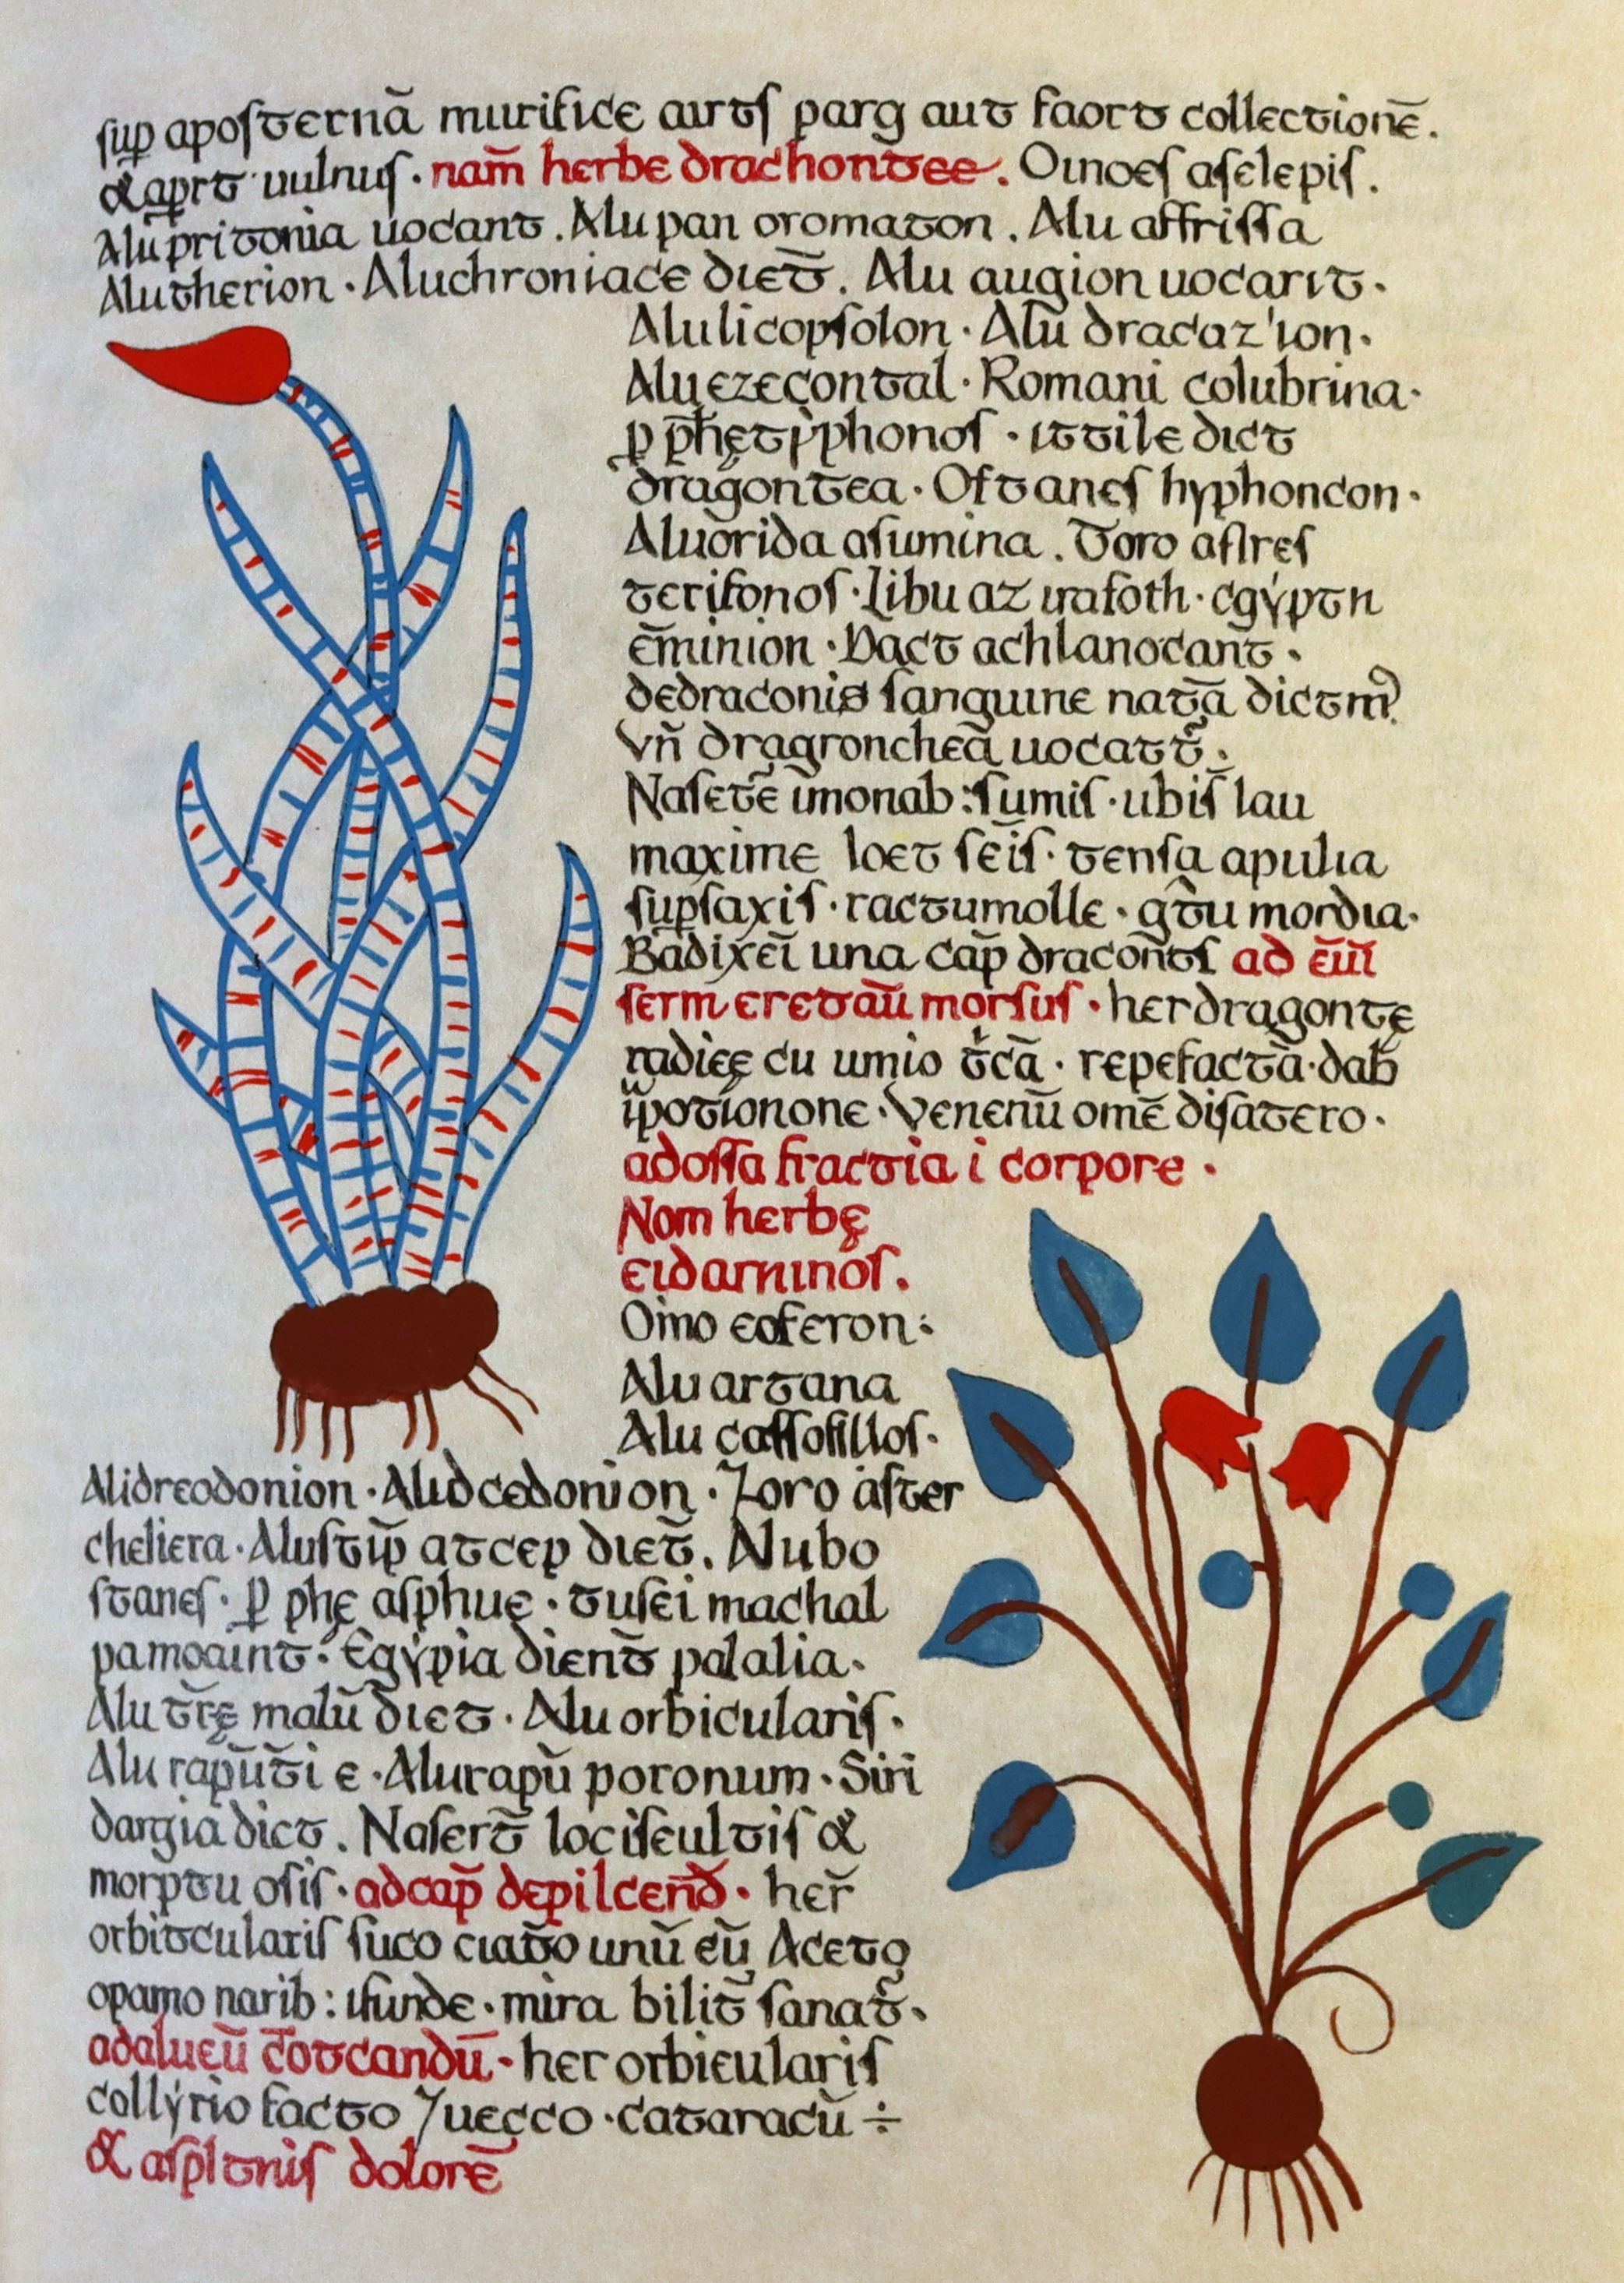 sup aposternā murifice airts parg aut faort collectionē.
& aprt vulnus. nam̄ herbe drachontee. Oinoes aselepis.
Alu pritonia uocant. Alu pan oromaton. Alu affrissa
Alu therion. Alu chroniace diet̄. Alu augion uocarit.
Alu licopsolon. Alu dracaz'ion.
Alu ezecontal. Romani colubrina.
ꝑ ph̄ę tẏphonos. ittile dict
dragontea. Ostanes hyphoncon.
Alu orida asumina. Toro aslres
terifonos. Libu az irafoth. egẏptn
ēminion. Dact achlanocant̄.
dedraconis sanguine natā dictm
Vn̄ dragroncheā uocatt̄.
Nasetē īmonab: sumis. ubis lau
maxime loet seīs. tensa apulia
supsaxis. ractumolle. gtu mordia.
Badixeī una cap̄ dracon̄ts ad ēūī
serm eretaū morsus. her dragontę
radieę cu umio tcā. repefactā. dab
ipotionone. Venenū omē disatero.
adossa fractia i corpore.
Nom herbę
eidarninos.
Oino eoferon:
Alu artana
Alu cassofillos.
Alidreodonion. Alidcedonion. Zoro aster
cheliera. Alustip̄ atcep diet̄. Nubo
stanes. ꝑ phę asphuę. tusei machal
pamoaint. Egẏpia dient̄ palalia.
Alu tr̄ę malū diet. Alu orbicularis.
Alu rapūti e. Alu rapū poronum. Siri
dargia dict. Nasert̄ locis eultis &
morptu osis. adcap̄ depilcen̄d. her̄
orbitcularis suco ciato unū eū Aceto
opamo narib: ifunde. mira bilit̄ sanat̄.
adalueū c̄otcandū. her orbieularis
collẏrio facto 7 uecco. cataracū ÷
& aspltnis dolorē